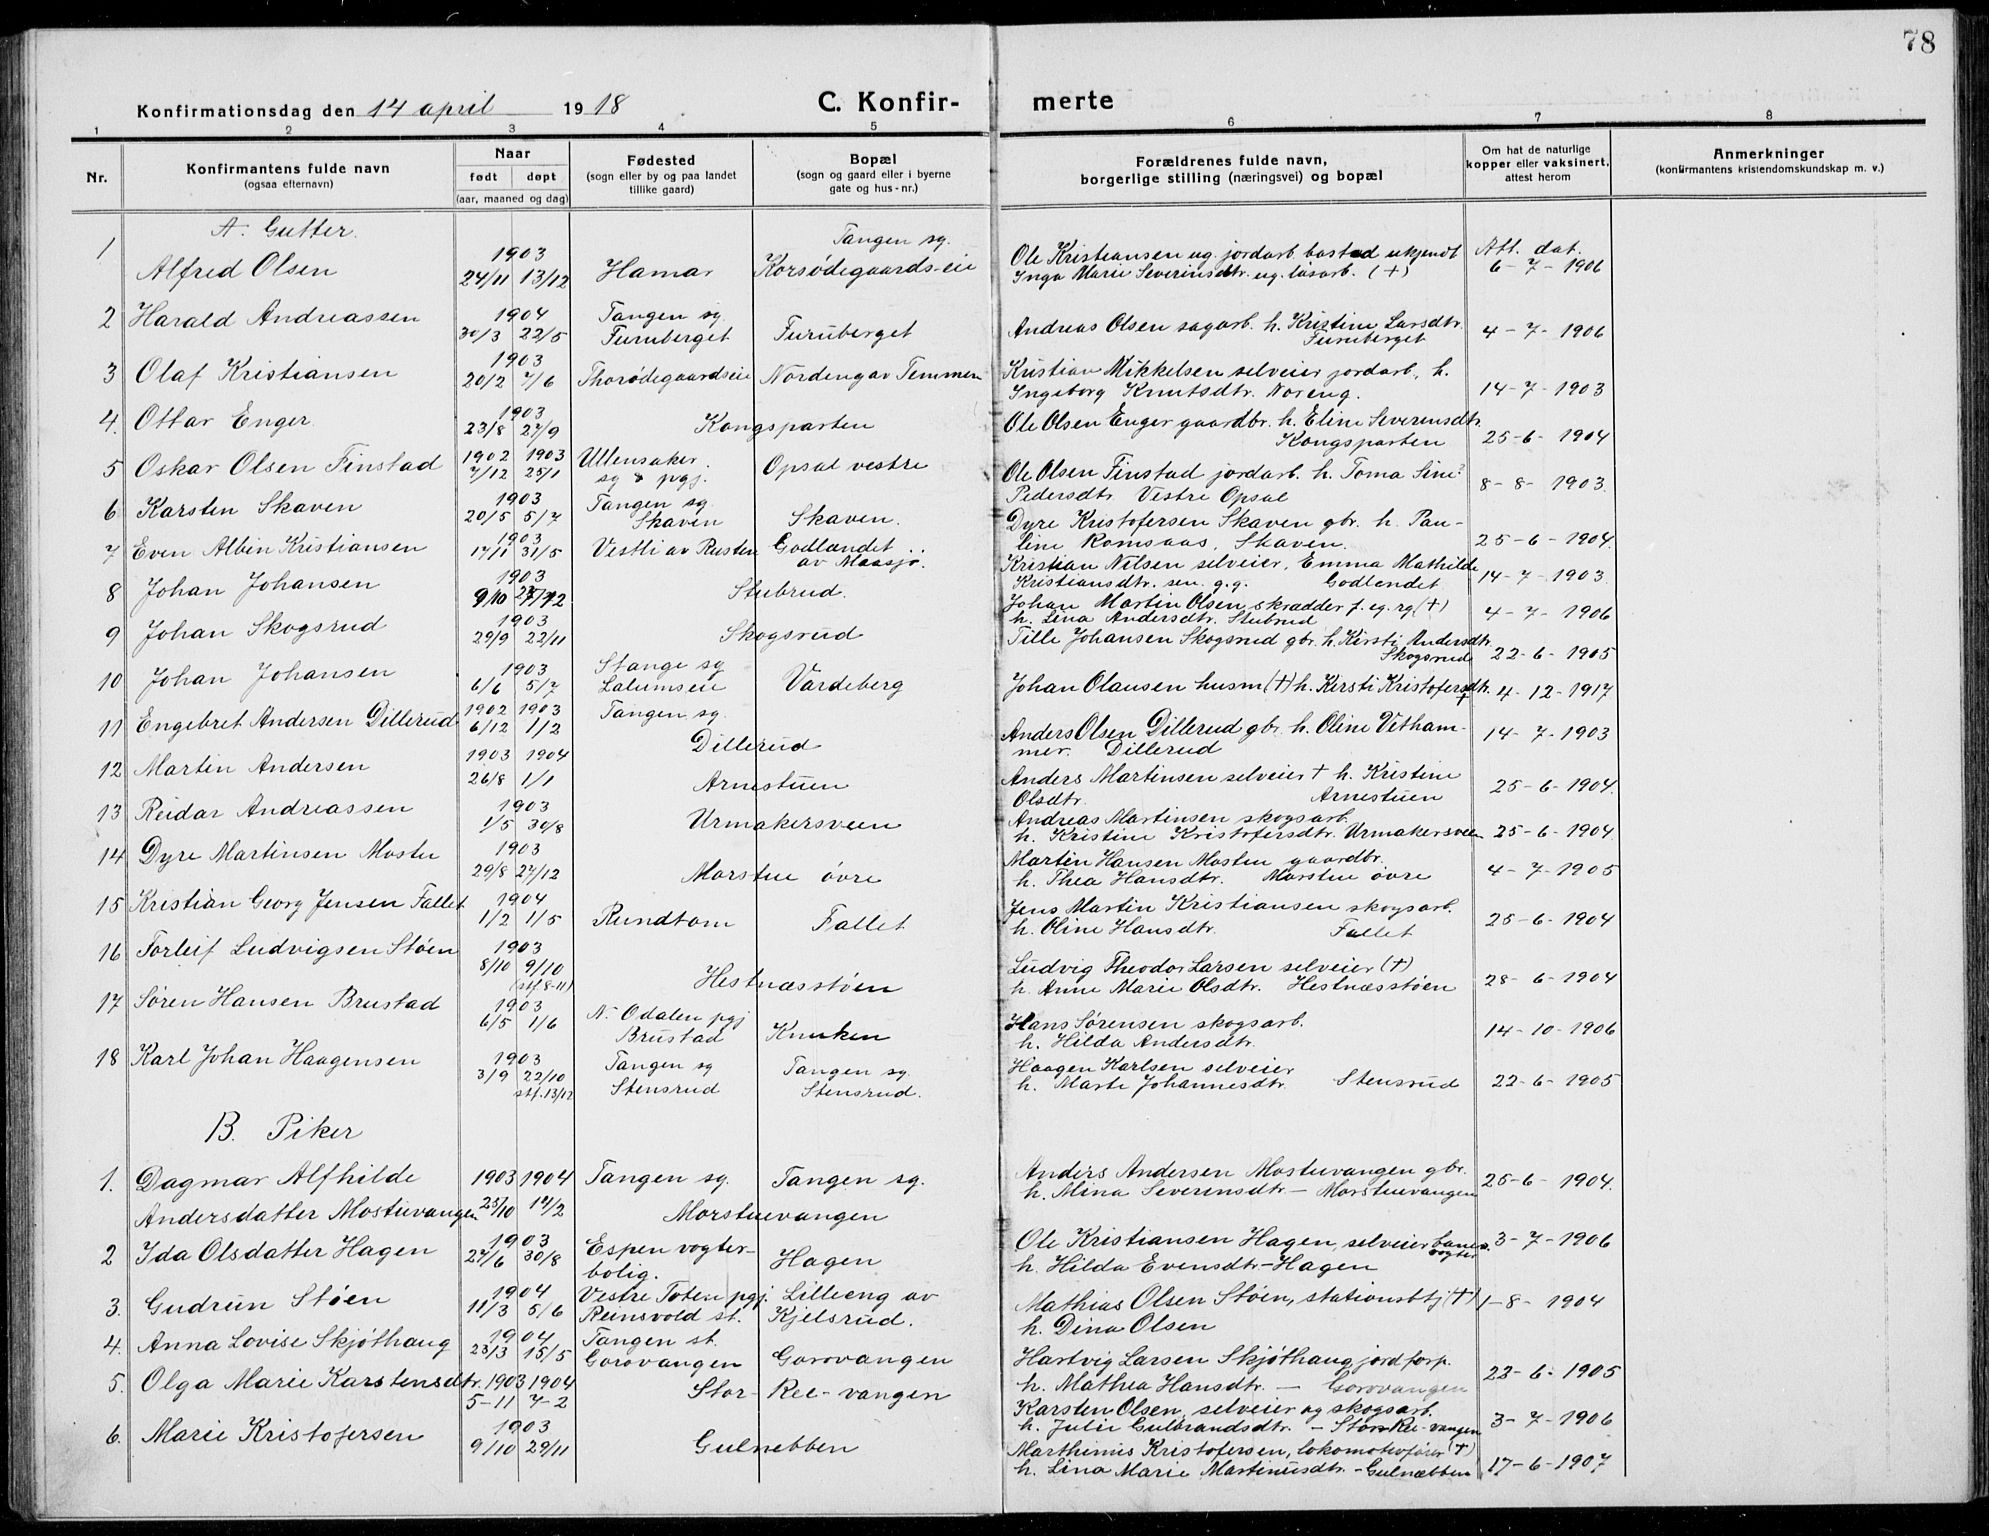 78
Konfirmationsdag den 14 april 1918 C. Konfirmerte
1 2 3 4 5 6 7 8
Nr.
Konfirmantens fulde navn
(ogsaa efternavn)
Naar
født døpt
(aar, maaned og dag)
Fødested
(sogn eller by og paa landet
tillike gaard)
Bopæl
(sogn og gaard eller i byerne
gate og hus-nr.)
Forældrenes fulde navn,
borgerlige stilling (næringsvei) og bopæl
Om hat de naturlige
kopper eller vaksinert,
attest herom
Anmerkninger
(konfirmantens kristendomskundskap m. v.)
A. Gutter.
1 Alfred Olsen 1903 24/11 13/12 Hamar Tangen sg. Korsødegaards-eie
Ole Kristiansen ug. jordarb. bosted ukjendt Att. dat.
Inga Marie Severinsdtr. ug. løsarb. (+) 6-7-1906
2 Harald Andreassen 1904 30/3 22/5 Tangen sg. Furuberget Furuberget
Andreas Olsen sagarb. h. Kristine Larsdtr. 4-7-1906
Furuberget
3 Olaf Kristiansen 1903 20/2 7/6 Thorødegaardseie Nordeng av Temmen
Kristian Mikkelsen selveier jordarb. h.
Ingeborg Knutsdtr. Noreng. 14-7-1903
4. Ottar Enger 1903 23/8 27/9 Kongsparten
Ole Olsen Enger gaardbr. h. Eline Severensdtr.
Kongsparten 25-6-1904
5 Oskar Olsen Finstad 1902 7/12 1903 25/1 Ullensaker sg & pgj. Opsal vestre
Ole Olsen Finstad jordarb. h. Toma Sine?
Pedersdtr. Vestre Opsal 8-8-1903.
6 Karsten Skaven 1903 20/5 5/7 Tangen sg Skaven Skaven.
Dyre Kristofersen Skaven gbr. h. Pau-
line Romsaas, Skaven. 25-6-1904.
7 Even Albin Kristiansen 1903 17/1 31/5 Vestli av Rusten Godlandet av Maasjø.
Kristian Nilsen selveier, Emma Mathilde
Kristiansdtr. sen. g.g. Godlendet 14-7-1903.
8 Johan Johansen 1903 9/10 27/12 Stubrud.
Johan Martin Olsen skrædder f. eg. rg (+)
h. Lina Andersdtr. Stubrud 4-7-1906
9 Johan Skogsrud 1903 29/9 22/11 Skogsrud
Tille Johansen Skogsrud gbr. h. Kirsti Andersdtr.
Skogsrud 22-6-1905
10 Johan Johansen 1903 6/6 5/7 Stange sg Lalumseie Vardeberg
Johan Olausen husm (+) h. Kersti Kristofersdtr. 4-12-1917
11 Engebret Andersen Dillerud 1902 6/12 1903 1/2 Tangen sg. Dillerud
Anders Olsen Dillerud gbr. h. Oline Vetham-
mer. Dillerud 14-7-1903
12 Martin Andersen 1903 26/8 1904 1/1 Arnestuen
Anders Martinsen selveier + h. Kristine
Olsdtr. Arnestuen 25-6-1904.
13 Reidar Andreassen 1903 1/5 30/8 Urmakersveen
Andreas Martinsen skogsarb.
h. Kristine Kristofersdtr. Urmakersveen 25-6-1904.
14 Dyre Martinsen Mostu 1903 29/8 27/12 Morstue øvre
Martin Hansen Mosten gaardbr.
h. Thea Hansdtr. Morstue øvre 4-7-1905
15 Kristian Georg Jensen Fallet 1904 1/2 1/5 Rundtom Fallet
Jens Martin Kristiansen skogsarb.
h. Oline Hansdtr. Fallet 25-6-1904
16 Torleif Ludvigsen Støen 1903 8/10 9/10 (stf. 8-11) Hestnæsstøen
Ludvig Theodor Larsen selveier (+)
h. Anne Marie Olsdtr. Hestnæsstøen 28-6-1904
17 Søren Hansen Brustad 1903 6/5 1/6 N. Odalen pgj Brustad Knuken
Hans Sørensen skogsarb.
h. Hilda Andersdtr. 14-10-1906
18 Karl Johan Haagensen 1903 3/9 22/10 stf. 13/12 Tangen sg Stensrud Tangen sg. Stensrud.
Haagen Karlsen selveier
h. Marte Johannesdtr. Stensrud 22-6-1905
B. Piker
1. Dagmar Alfhilde 1903 1904 Tangen sg. Tangen sg.
Andersdatter Mostuvangen 25/10 14/2 Morstuevangen
Anders Andersen Mostuvangen gbr.
h. Mina Severensdtr - Morstuevangen 25-6-1904.
2 Ida Olsdatter Hagen 1903 27/6 30/8 Espen vogter-bolig. Hagen
Ole Kristiansen Hagen, selveier banevogter 3-7-1906
h. Hilda Evensdtr - Hagen
3. Gudrun Støen 1904 11/3 5/6 Vestre Toten pgj. Reinsvold st. Lilleeng av Kjelsrud.
Mathias Olsen Støen, stationsbtj (+) 1-8-1904
h. Dina Olsen
4. Anna Lovise Skjøthaug 1904 23/3 15/5 Tangen st. Gorovangen Gorovangen
Hartvig Larsen Skjøthaug, jordforp.
h. Mathea Hansdtr. - Gorovangen 22-6-1905
5. Olga Marie Karstensdtr. 1903 1904 5-11 7-2 Stor-Ree-vangen
Karsten Olsen, selveier og skogsarb.
h. Julie Gulbrandsdtr. - Stor-Ree-vangen 3-7-1906
6. Marie Kristofersen 1903 9/10 29/11 Gulnebben
Marthinus Kristofersen, lokomotivfører (+)
h. Lina Marie Martinusdtr. - Gulnæbben 17-6-1907